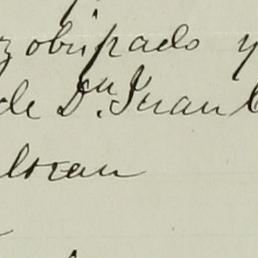 zobispado y
de Dn. Juan C
loran